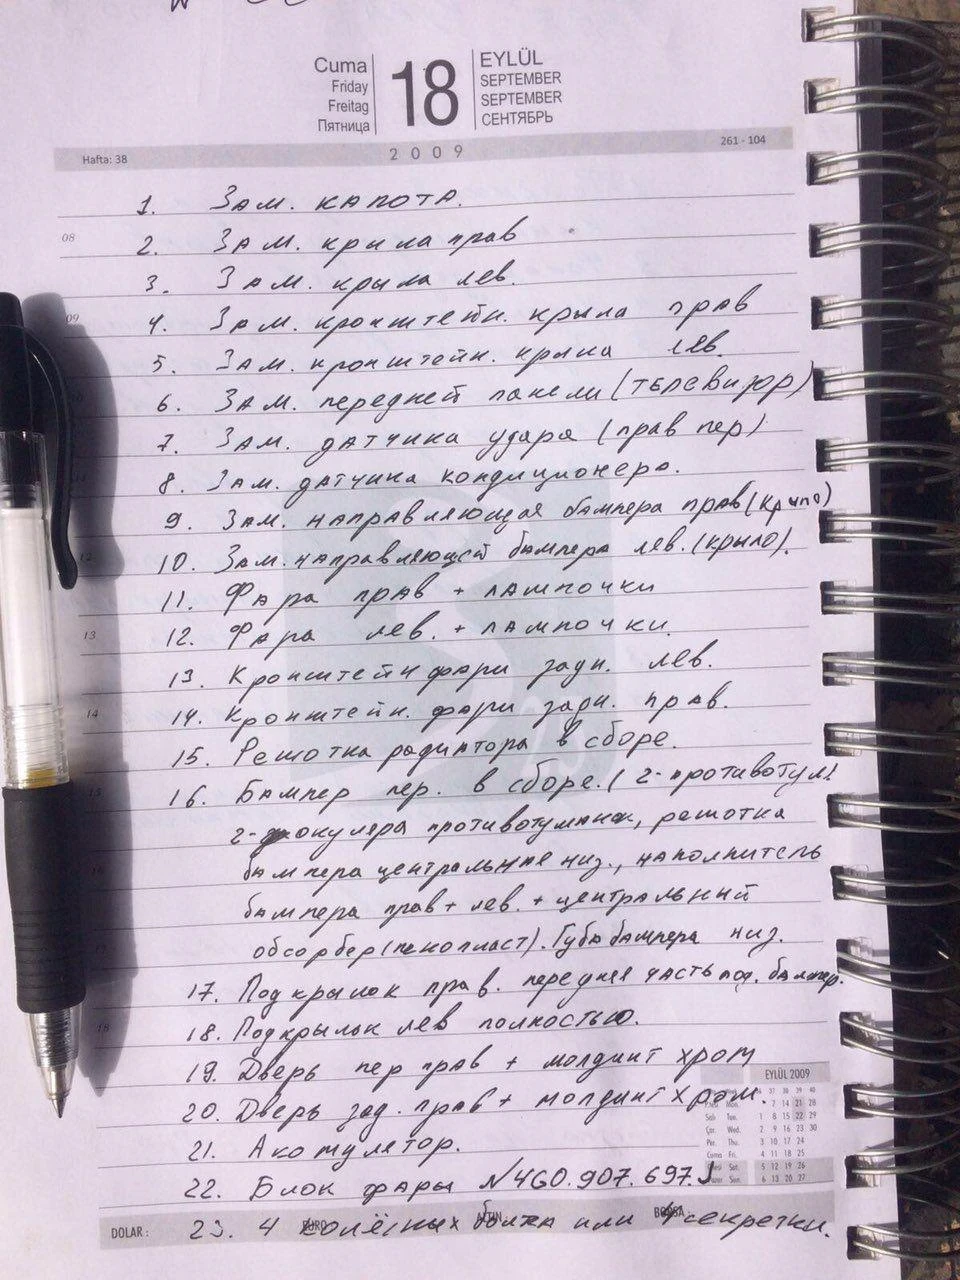 Cuma
Friday
Freitag
Пятница
18
EYLÜL
SEPTEMBER
SEPTEMBER
СЕНТЯБРЬ
Hafta: 38
2009
261 - 104
1. Зам. капота.
08
2. Зам. крыла прав
3. Зам. крыла лев.
09
4. Зам. кронштейн. крыла прав
5. Зам. кронштейн. крыла лев.
6. Зам. передней панели (телевизор)
7. Зам. датчика удара (прав пер)
8. Зам. датчика кондиционера.
9. Зам. направляющая бампера прав (крыло)
12
10. Зам. направляющей бампера лев. (крыло).
11. Фара прав + лампочки
13
12. Фара лев. + лампочки.
13. Кронштейн фари задн. лев.
14
14. Кронштейн. фари задн. прав.
15. Решотка радиатора в сборе.
15
16. Бампер пер. в сборе. (2-противотум.
2- окуляра противотуманок, решотка
бампера центральная низ., наполнитель
бампера прав + лев. + центральный
обсорбер (пенопласт). Губа бампера низ.
17. Подкрылок прав. передняя часть под. бампер.
18
18. Подкрылок лев полностью.
19. Дверь пер прав + молдинг хром
20. Дверь зад. прав + молдинг хром.
21. Акомулятор.
22. Блок фары N4G0.907.697.J
EYLÜL 2009
DOLAR :
EURO
ALTIN
BORSA
23. 4 колёсных болта или секретки.